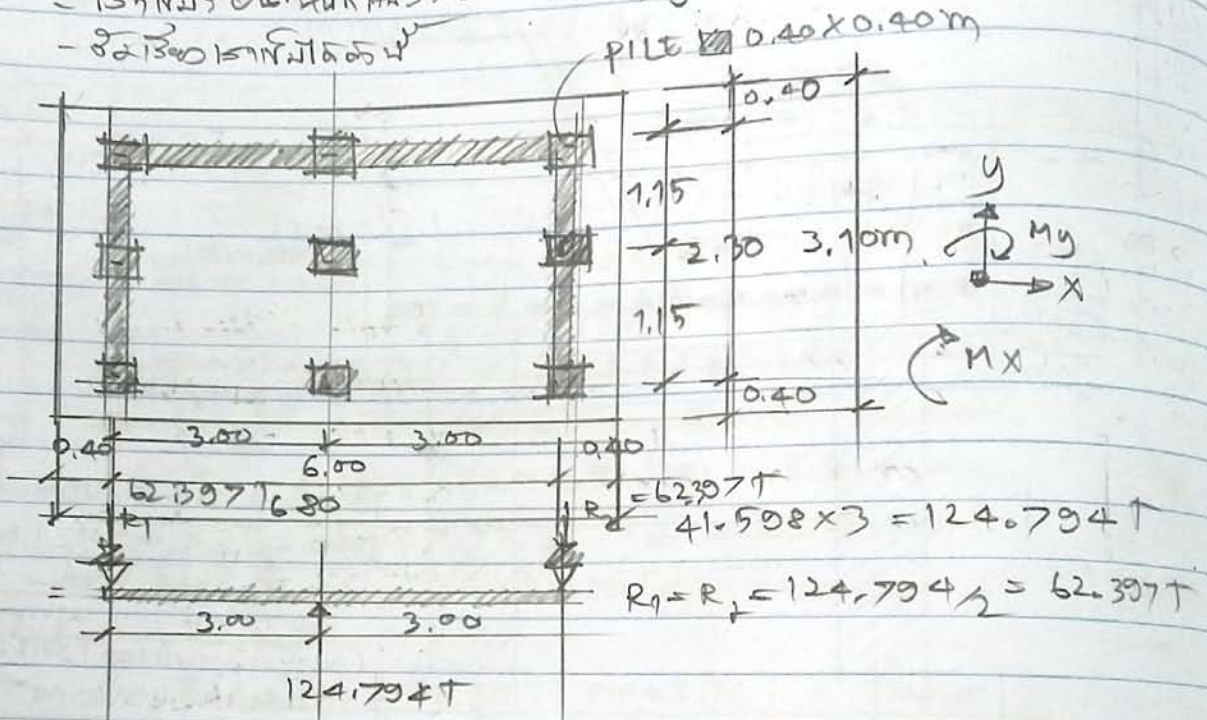 PILE 0.40 X 0.40 m
0.40
1.15
2.30
3.10m
1.15
0.40
y
My
X
MX
0.40
3.00
3.00
0.40
6.00
62.397T
6.80
R1
R2 = 62.397T
41.598 x 3 = 124.794T
=
R1 = R2 = 124.794/2 = 62.397T
3.00
3.00
124.794T